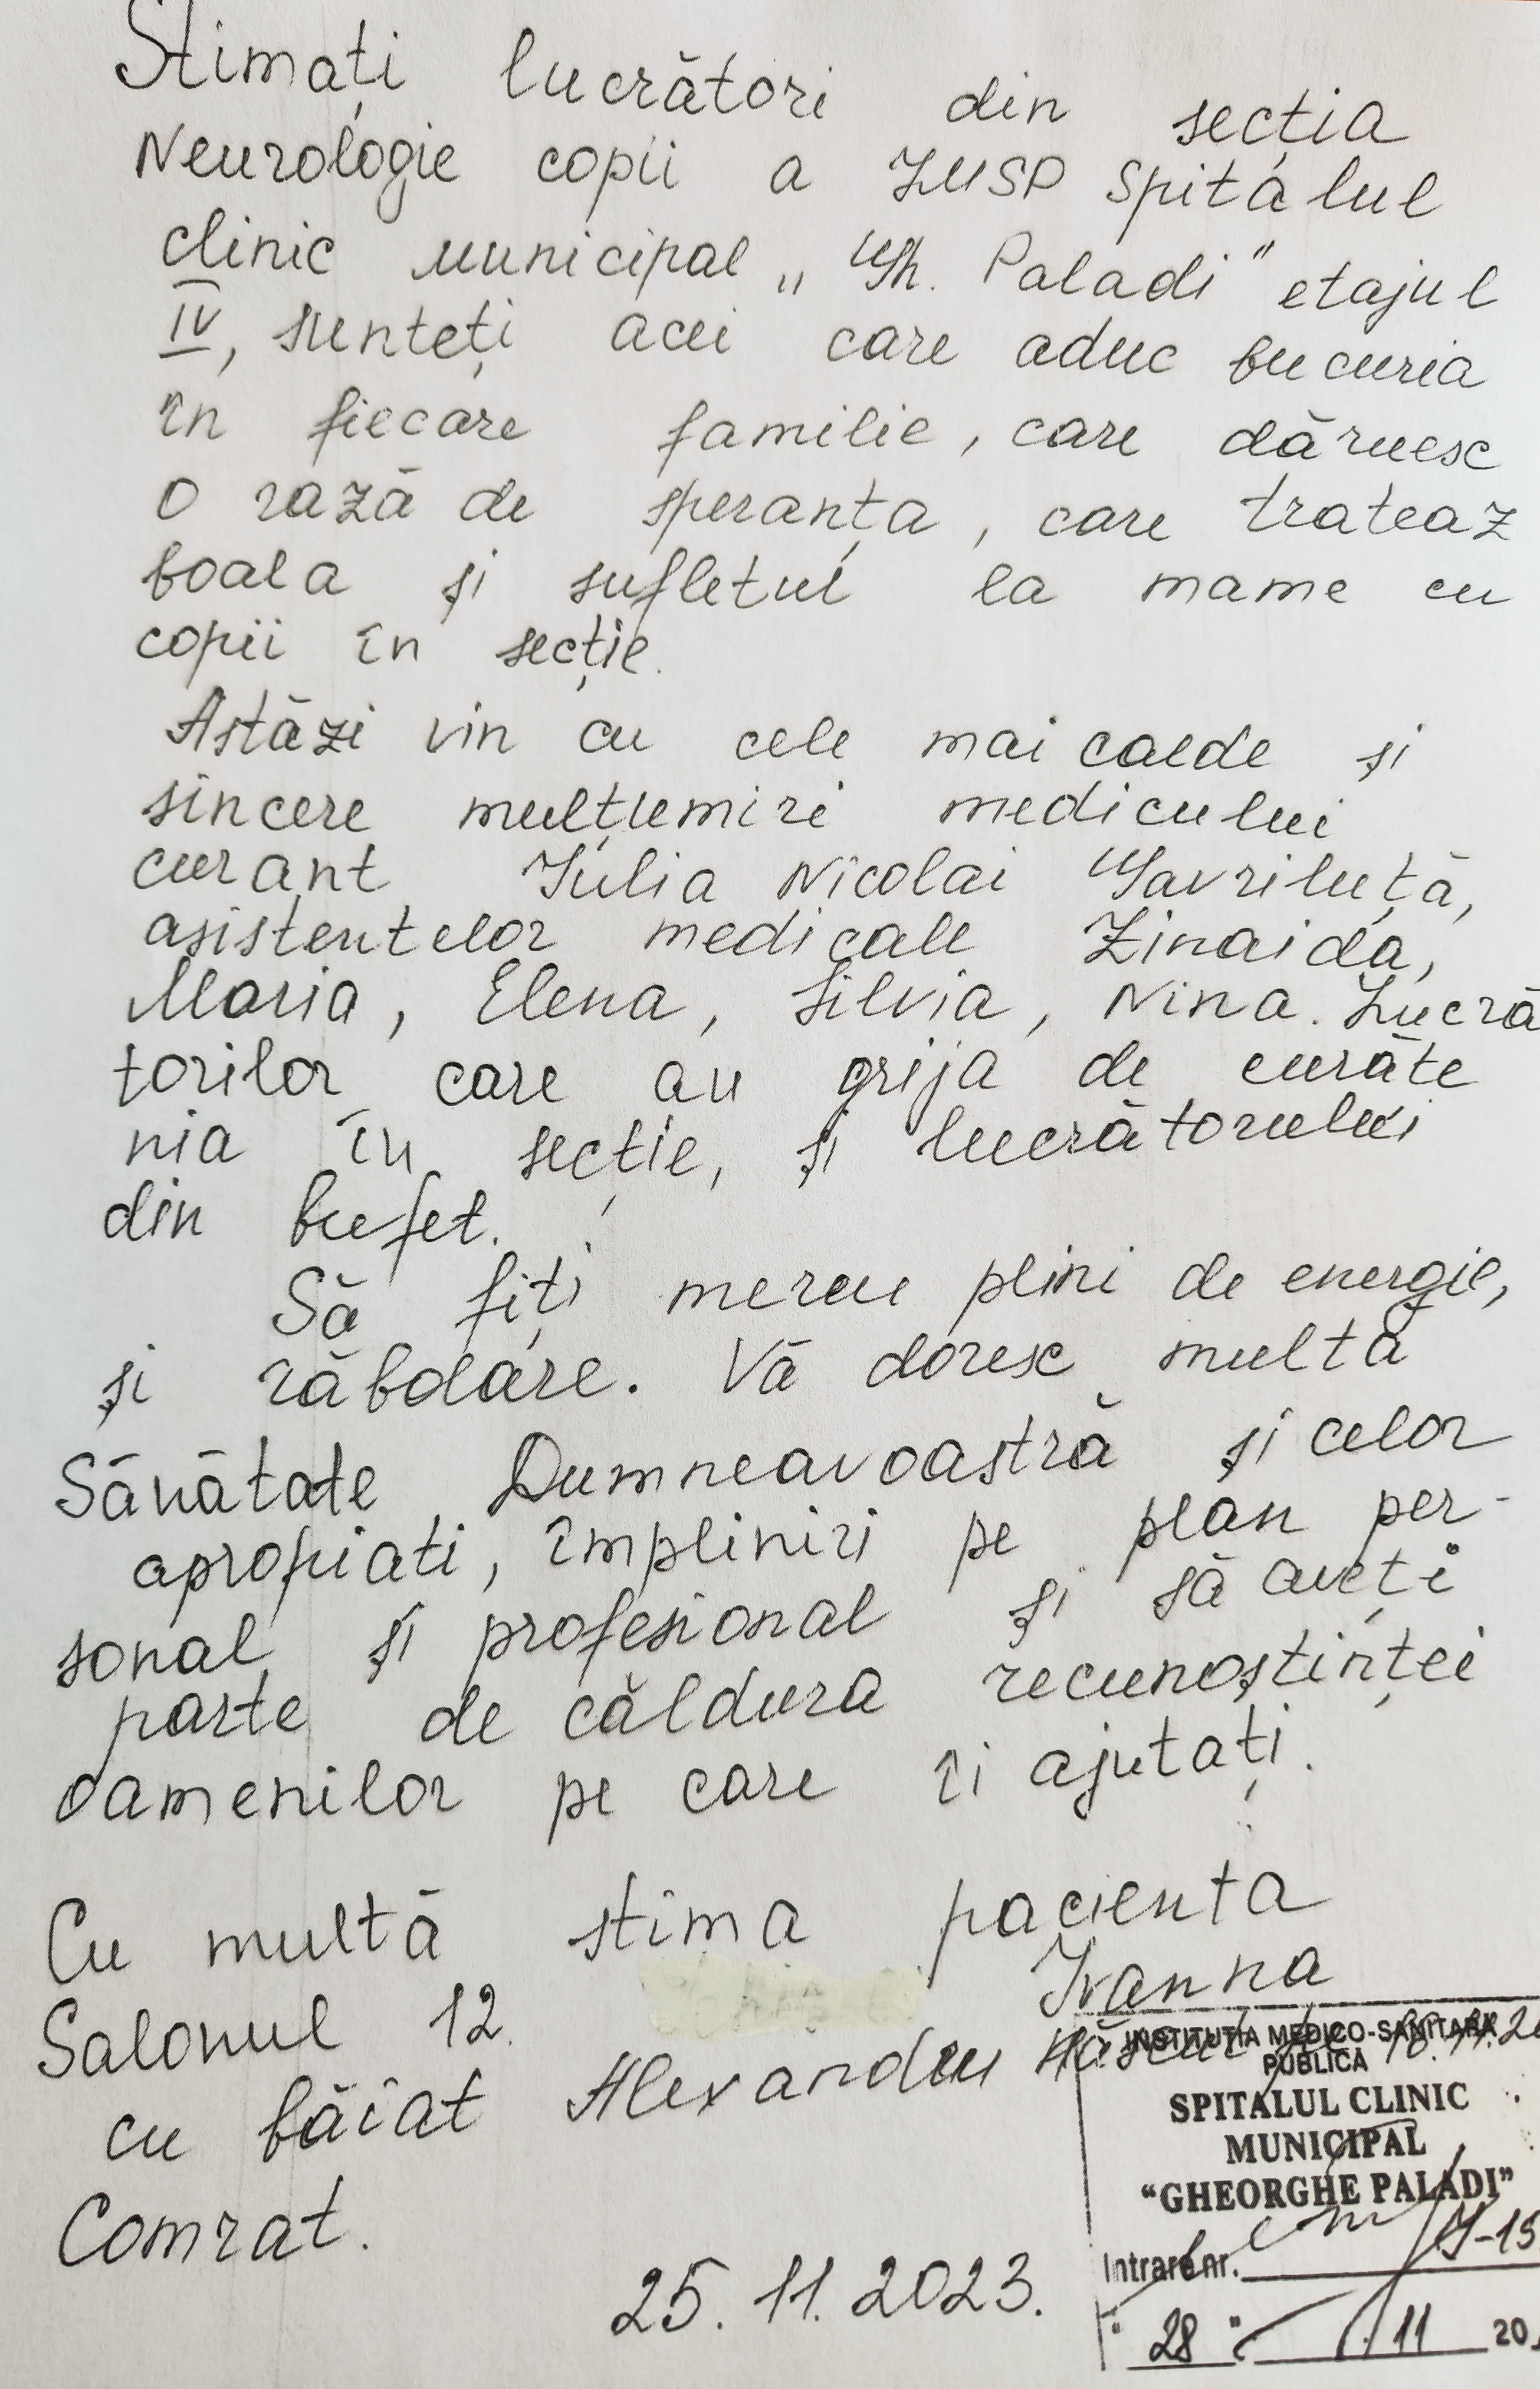 Stimați lucrători din secția
Neurologie copii a IMSP Spitalul
clinic Municipal „Gh. Paladi" etajul
IV, sunteți acei care aduc bucuria
în fiecare familie, care dăruesc
o rază de speranța, care trateaz
boala și sufletul la mame cu
copii în secție.
Astăzi vin cu cele mai calde și
sincere mulțumiri medicului
curant Iulia Nicolai Gavriluță,
asistentelor medicale Zinaida,
Maria, Elena, Silvia, Nina. Lucră
torilor care au grija de curăte
nia în secție, și lucrătorului
din bufet.
Să fiți mereu plini de energie,
și răbdare. Vă doresc multă
Sănătate Dumneavoastră și celor
apropiati, împliniri pe plan per-
sonal și profesional și să aveți
parte de căldura recunoștinței
oamenilor pe care îi ajutați.
Cu multă stima pacienta
Ivanna
Salonul 12.
cu băiat Alexandru Născut
Comrat.
25.11.2023.
INSTITUȚIA MEDICO-SANITARĂ
PUBLICĂ
SPITALUL CLINIC
MUNICIPAL
"GHEORGHE PALADI"
Intrare nr.
"28" 11 20